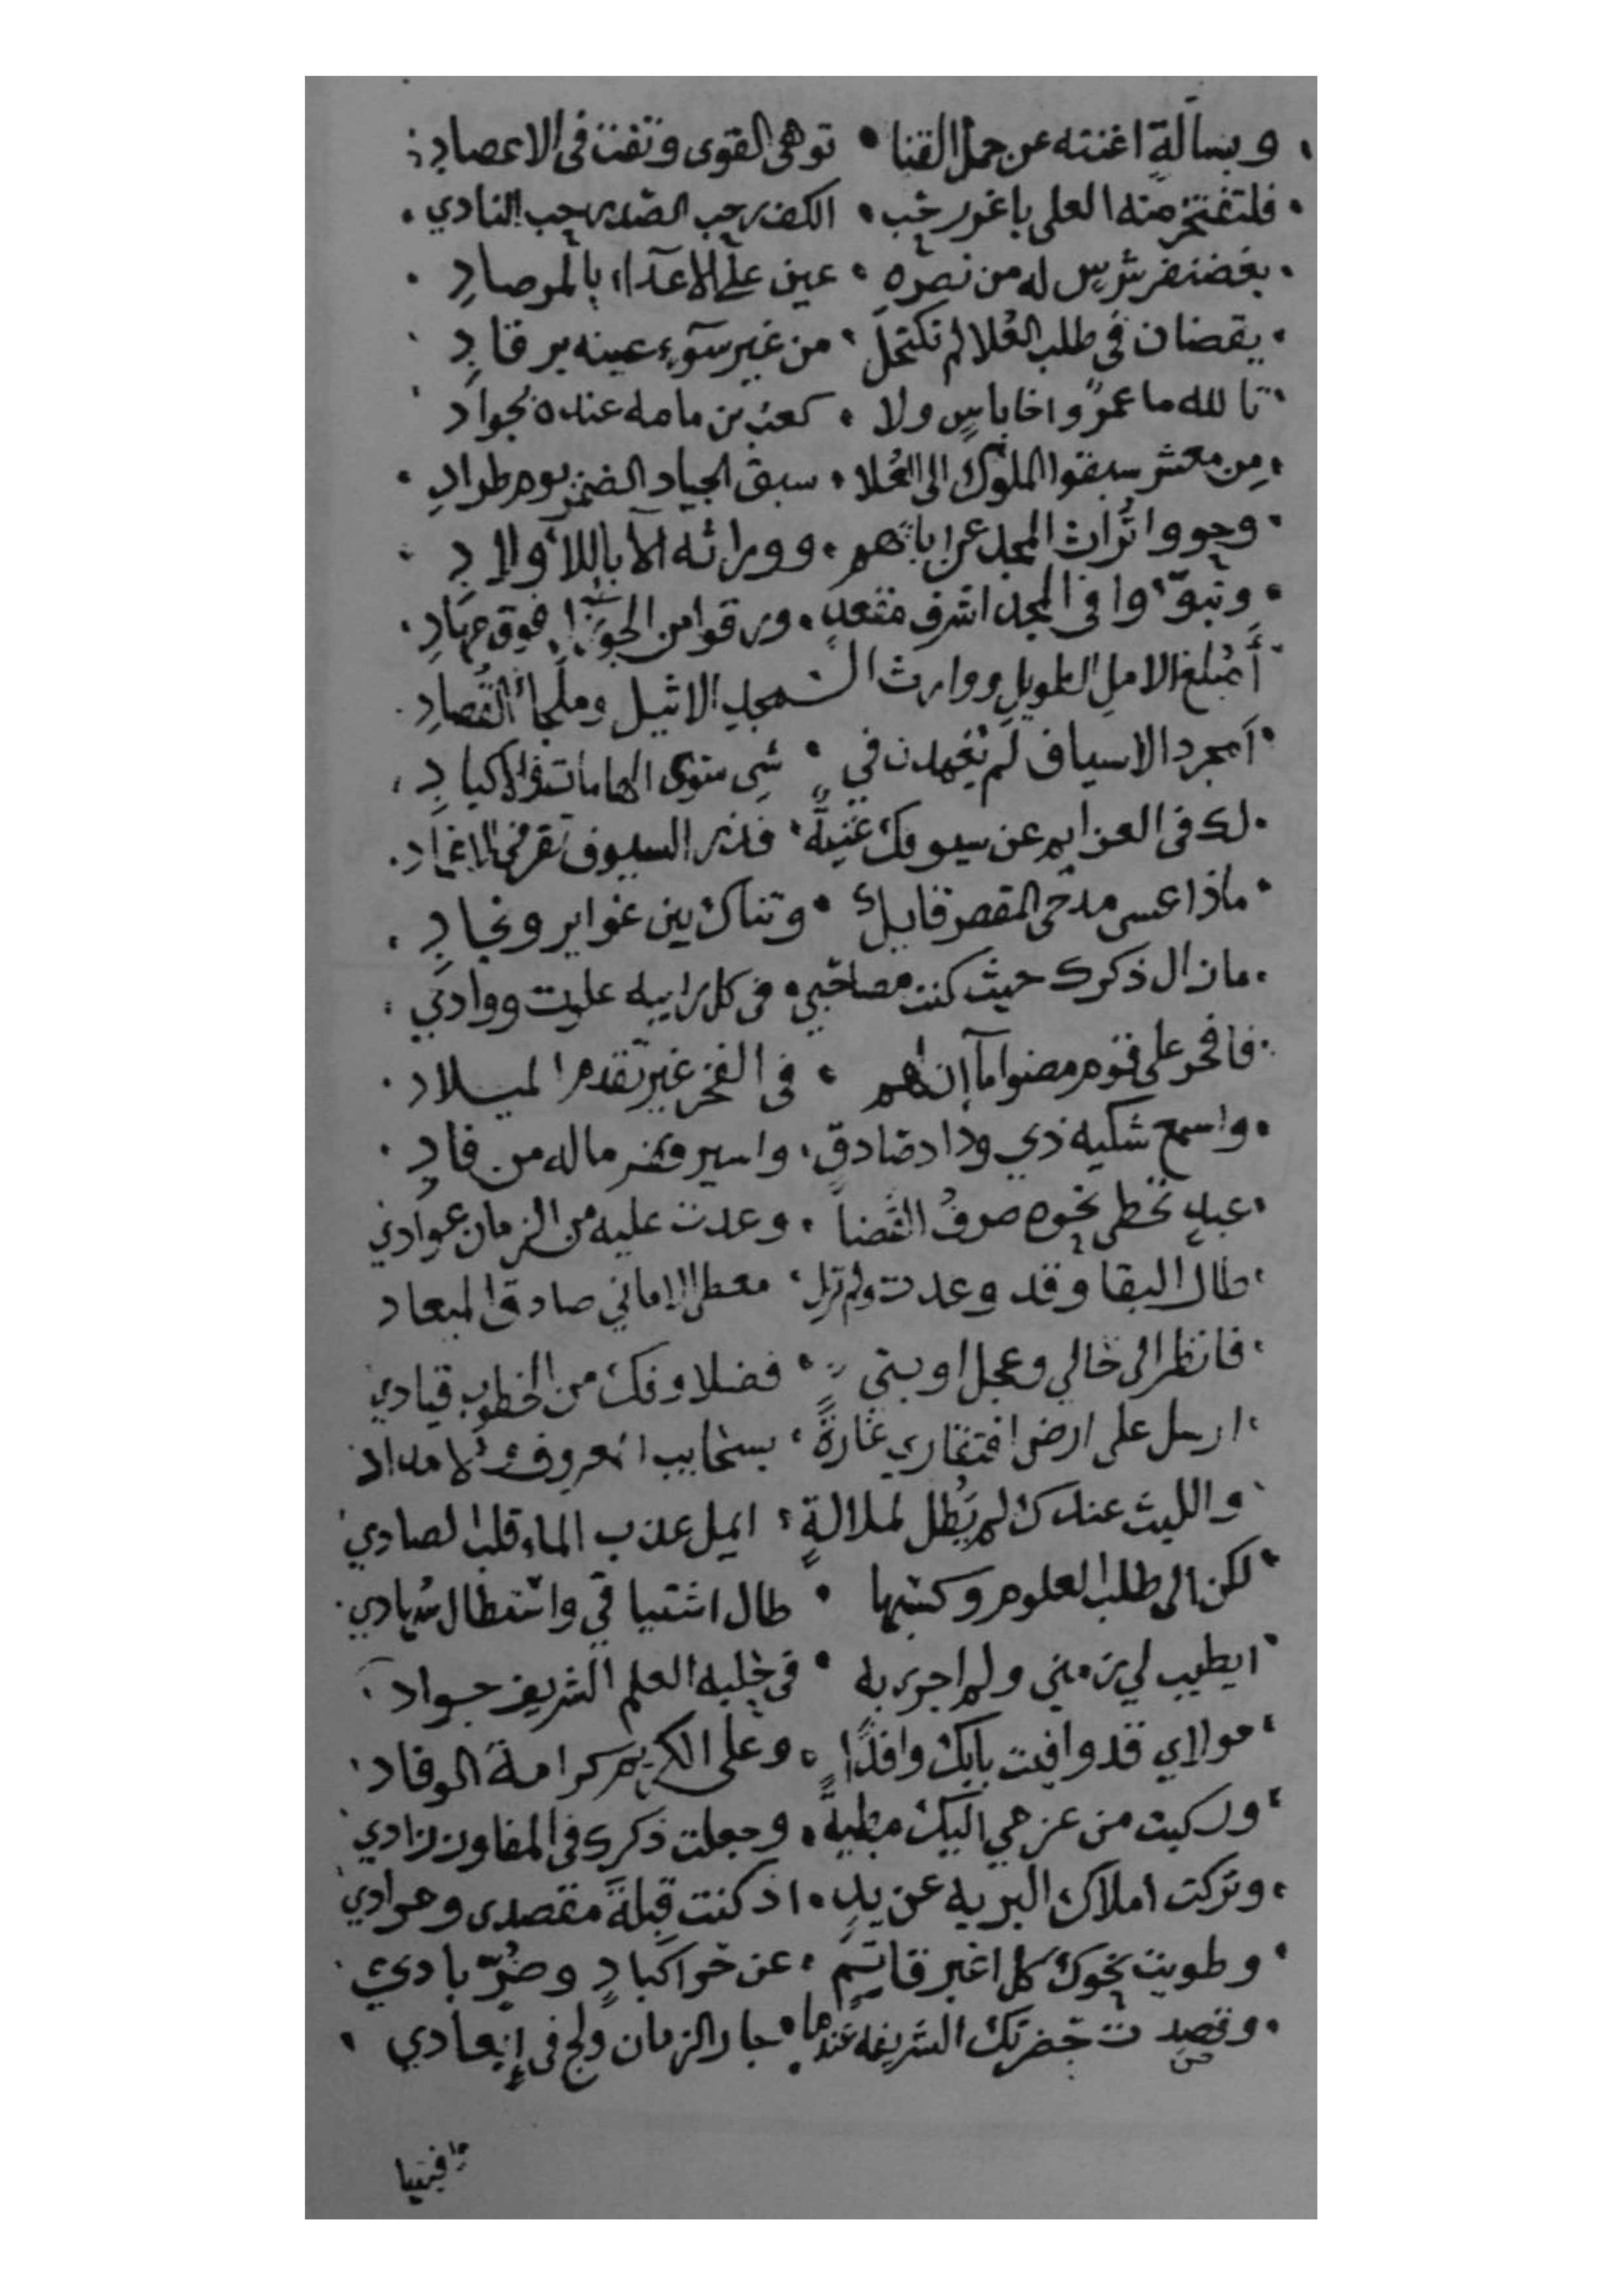 وبسالةٍ اغنته عن حمل القنا • توهى القوى وتفت فى الاعضادِ
فلتفتخر منه العلى باغر رحب • الكف رحب الصدر رحب النادي
بغضنفر شرسٍ له من نصره • عين على الاعدآء بالمرصادِ
يقضان فى طلب العُلا لم تكتحل • من غير سوءٍ عينه برقادِ
تالله ما عمرًو اخا باسٍ ولا • كعب بن مامه عنده بجوادِ
من معشر سبقوا الملوك الى العُلا • سبق الجياد الضمر يوم طرادِ
وحووا تُراث المجد عن ابائهم • ووراثه الآبا للاولادِ
وتبوّءوا فى المجد اشرف مقعدٍ • ورقوا من الجوزآء فوق مهادِ
أمُبلغ الامل الطويل ووارث الـمجد الاثيل وملجأ القُصادِ
أمجرد الاسياف لم تُغمدن في • شي سوى الهامات والاكبادِ
لك فى العزايم عن سيوفك غُنيةٌ • فذر السيوف تقر فى الاغمادِ
ماذا عسى مدحى المقصر قايل • وثناك بين غواير ونجادِ
ما زال ذكرك حيث كنت مصاحبي • فى كل رابيه علوت ووادي
فافخر على قوم مضوا ما إن لهم • فى الفخر غير تقدم الميلاد
واسمع شكيه ذي ودادٍ صادقٍ • واسير فقر ماله من فادِ
عبدٍ تخطى نحوه صرفُ القضا • وعدت عليه من الزمان عوادي
طال البقا وقد وعدت ولم تزل • معطى الاماني صادق الميعاد
فانظر الى حالي وعجل اوبتي • فضلا وفك من الخطوب قيادي
ارسل على ارض افتقاري غارةً • بسحايب المعروف والامداد
والليث عندك لم يَطُل لملالةٍ • ايمل عذب الماء قلب الصادي
لكن الى طلب العلوم وكسبها • طال اشتياقي واستطال سُهادي
ايطيب لي زمني ولم اجر به • فى حلبه العلم الشريف جواد
مولاي قد وافيت بابك وافدًا • وعلى الكريم كرامة الوفاد
وركبت من عزمي اليك مطيةً • وجعلت ذكرك فى المفاوز زادي
وتركت املاك البريه عن يدٍ • اذ كنت قبلةَ مقصدى ومرادي
وطويت نحوك كل اغبر قاتم • عن حر اكبادٍ وضُرّ بادي
وقصدت حضرتك الشريفه عندما • جار الزمان ولج فى إبعادي